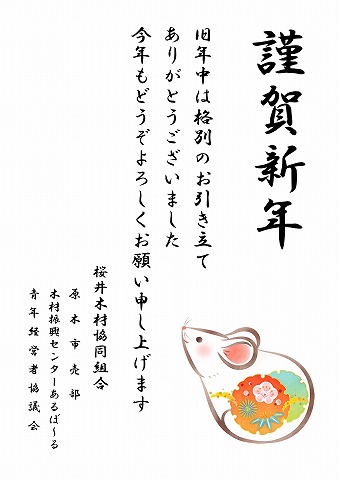 謹賀新年
旧年中は格別のお引き立て
ありがとうございました
今年もどうぞよろしくお願い申し上げます
桜井木材協同組合
原木市売部
木材振興センターあるぼ～る
青年経営者協議会